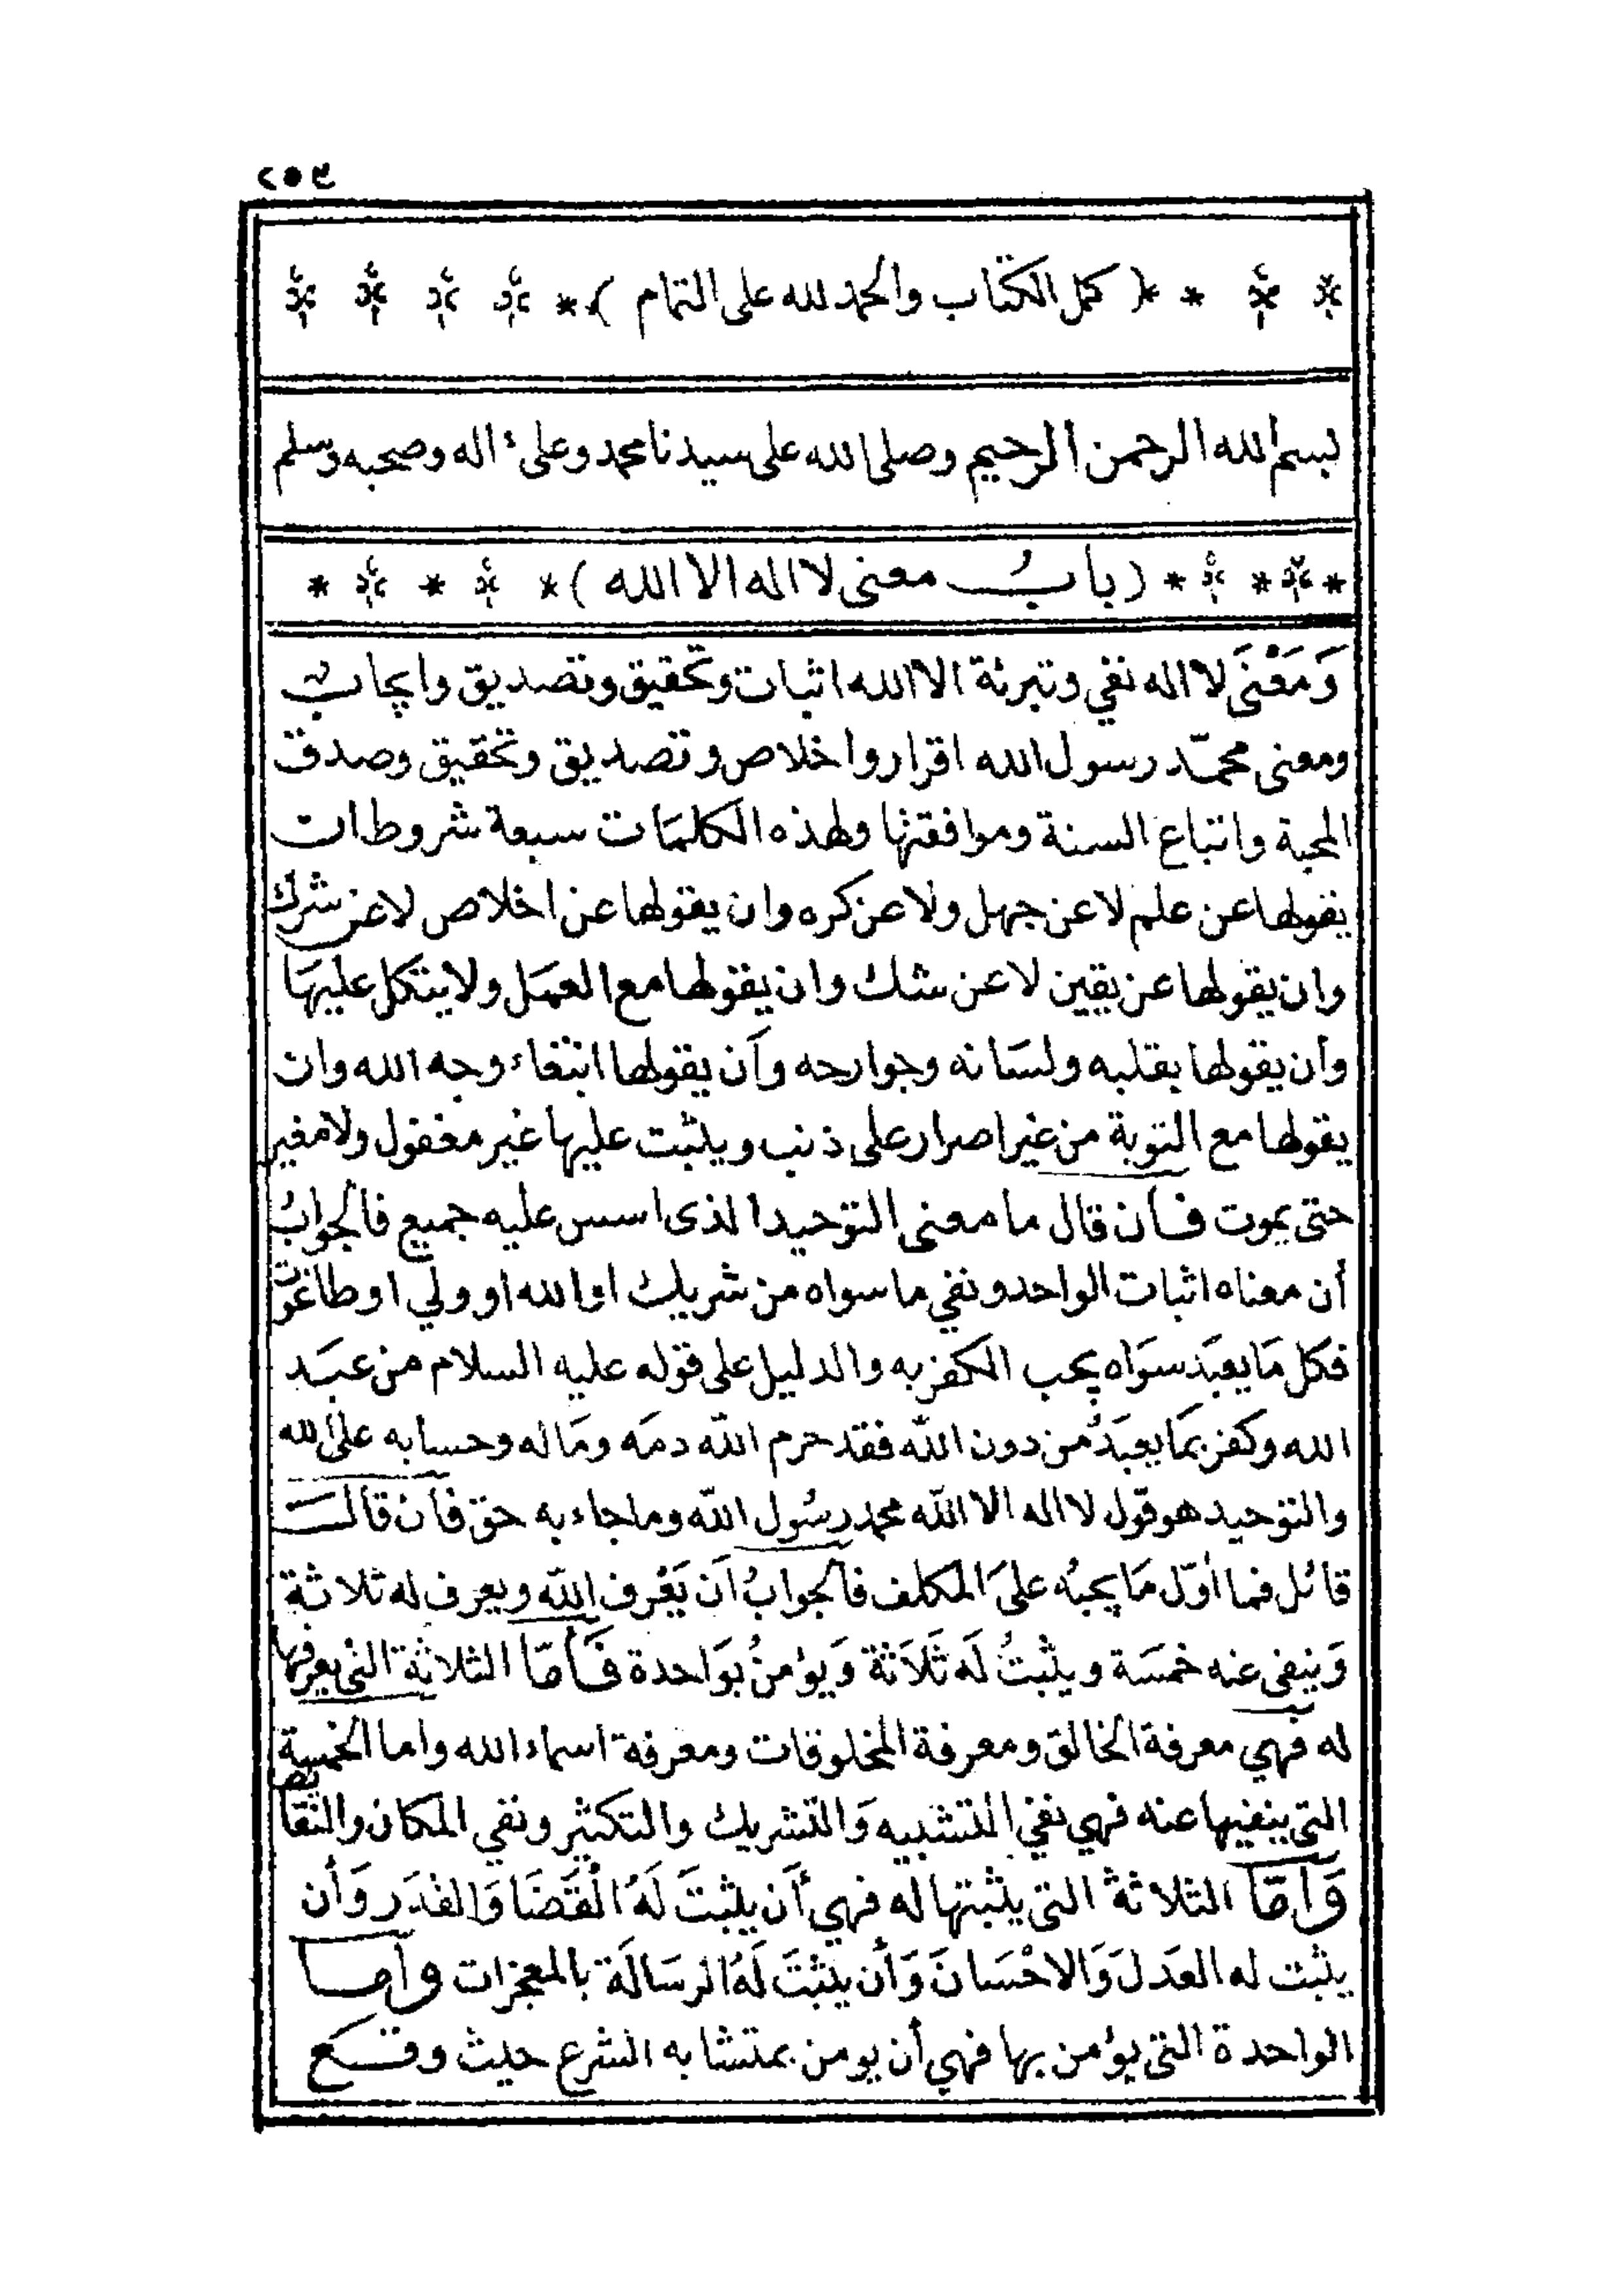 ٢٥٤
* * * ( كمل الكتاب والحمد لله على التمام ) * * * * *
بسم الله الرحمن الرحيم وصلى الله على سيدنا محمد وعلى ءاله وصحبه وسلم
* * * * * ( باب معنى لا اله الا الله ) * * * * *
وَمَعْنَى لا اله نفي وتبرئة الا الله اثبات وتحقيق وتصديق وايجاب
ومعنى محمّد رسول الله اقرار واخلاص وتصديق وتحقيق وصدق
المحبة واتباع السنة وموافقتها ولهذه الكلمات سبعة شروط ان
يقولها عن علم لا عن جهل ولا عن كره وان يقولها عن اخلاص لا عن شرك
وان يقولها عن يقين لا عن شك وان يقولها مع العمَل ولا يتكل عليهَا
وأن يقولها بقلبه ولسَانه وجوارحه وأن يقولها ابتغاء وجه الله وان
يقولها مع التوبة من غير اصرار على ذنب ويثبت عليها غير مغفول ولا مغير
حتى يموت فان قال ما معنى التوحيد الذى اسس عليه جميع فالجوابُ
أن معناه اثبات الواحد ونفي ما سواه من شريك او الله او ولي او طاغوت
فكل مَا يعبَد سوَاه يجب الكفر به والدليل على قوله عليه السلام من عبَد
الله وكفر بمَا يعبَدُ من دون اللّه فقد حرم اللّه دمَه ومَاله وحسابه على الله
والتوحيد هو قول لا اله الا اللّه محمد رسُول اللّه وما جاء به حق فان قالَ
قائل فما أوّل مَا يجبُه علىَ المكلف فالجوابُ أن يَعْرف اللّه ويعرف له ثلاثة
وَينفى عنه خمسَة ويثبتُ لَه ثَلاَثة وَيؤمنُ بوَاحدة فَأمّا الثلاثة التى يعرفها
له فهي معرفة الخالق ومعرفة المخلوقات ومعرفة اسماء الله واما الخمسة
التى ينفيها عنه فهي نفي التشبيه وَالتشريك والتكثير ونفي المكان والنقائص
وَأمّا الثلاثة التى يثبتها له فهي أن يثبتَ لَهُ الْقَضَا وَالقدَر وَأن
يثبت له العَدلَ وَالاحْسَانَ وَأن يثبتَ لَهُ الرسَالَة بالمعجزات وأما
الواحدة التى يؤمن بها فهي أن يومن بمتشابه الشرع حيث وقَع